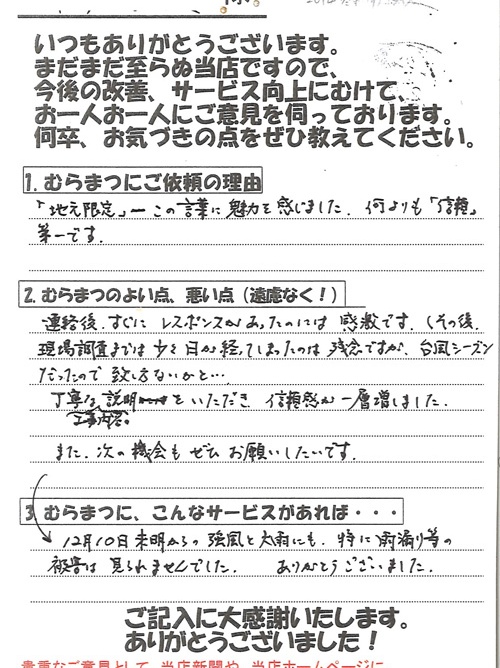 様
いつもありがとうございます。
まだまだ至らぬ当店ですので、
今後の改善、サービス向上にむけて、
お一人お一人にご意見を伺っております。
何卒、お気づきの点をぜひ教えてください。
1. むらまつにご依頼の理由
「地元限定」ーこの言葉に魅力を感じました. 何よりも「信頼」
第一です.
2. むらまつのよい点、悪い点（遠慮なく！）
連絡後. すぐに レスポンスがあったのには 感激です. (その後.
現場調査までは 少々 日が経ってしまったのは 残念ですが、台風シーズン
だったので 致し方ないかと…
丁寧な 説明 をいただき 信頼感が 一層増しました.
工事内容の
また. 次の機会も ぜひ お願いしたいです.
3. むらまつに、こんなサービスがあれば・・・
12月10日未明からの 強風と大雨にも. 特に雨漏り等の
被害は 見られませんでした. ありがとうございました.
ご記入に大感謝いたします。
ありがとうございました！
貴重なご意見として、当店新聞や、当店ホームページに